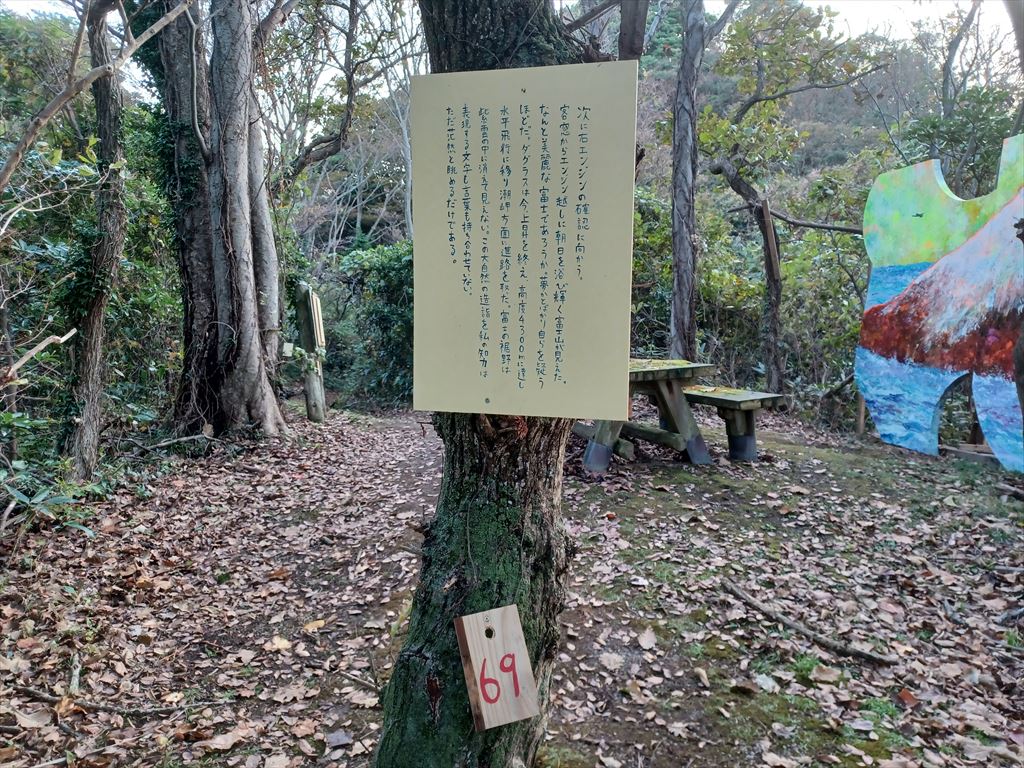 次に右エンジンの確認に向かう。
客窓からエンジン越しに朝日を浴び輝く富士山が見えた。
なんと美麗な富士であろうか、夢かとばかり自らを疑う
ほどだ。ダグラスは今上昇を終え、高度4300mに達し
水平飛行に移り潮岬方面に進路を取た。富士の裾野は
紫雲の中に消え今見えない。この大自然の造詣を私の知力は
表現する文字も言葉も持ち合わせていない。
ただ茫然と眺めるだけである。
69